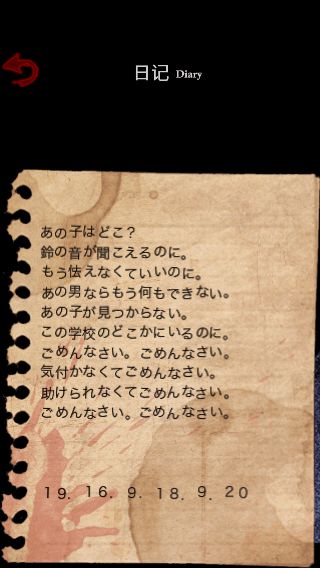 日记 Diary
あの子はどこ？
鈴の音が聞こえるのに。
もう怯えなくていいのに。
あの男ならもう何もできない。
あの子が見つからない。
この学校のどこかにいるのに。
ごめんなさい。ごめんなさい。
気付かなくてごめんなさい。
助けられなくてごめんなさい。
ごめんなさい。ごめんなさい。
19. 16. 9. 18. 9. 20